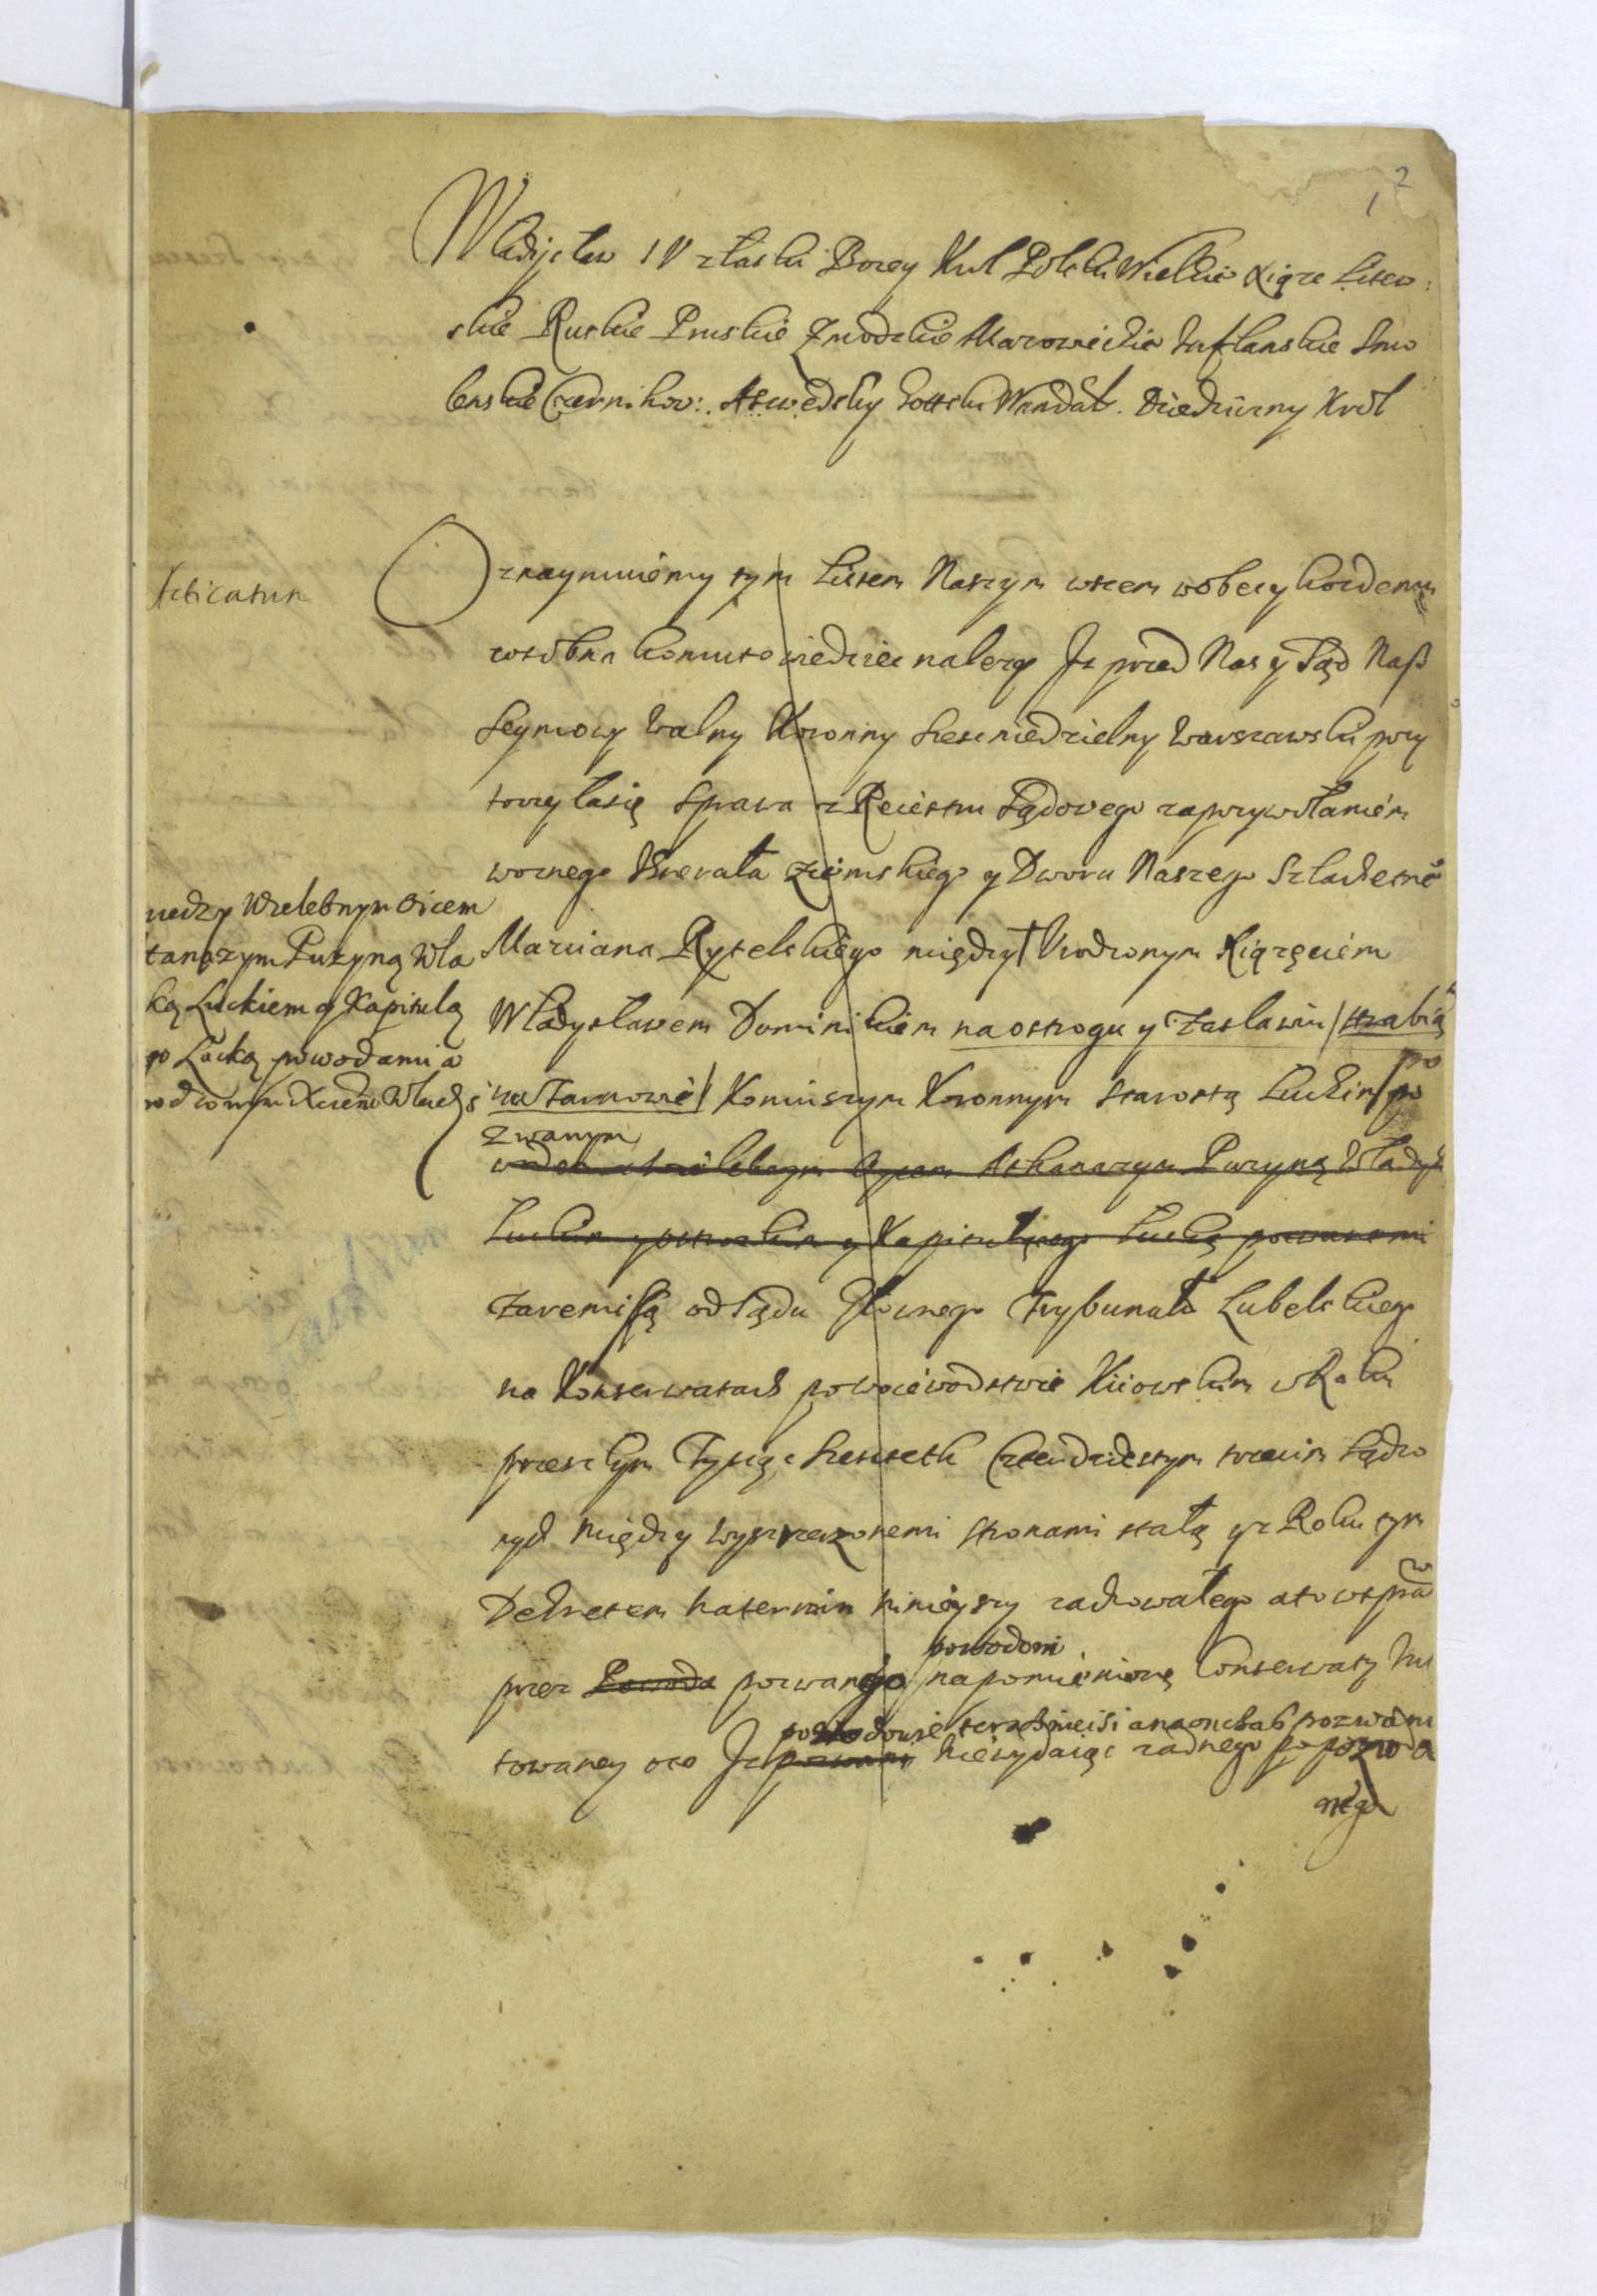 12
Wladysław IV z łaski Bozey Krol Polski Wielkie Xiąze Litew:
skie Ruskie Pruskie Zmodzkie Mazowieckie Inflanskie Smo
lenskie Czernikow: A Szwedzky Gottski Wandal. Dziedziczny Krol
Oznaymuiemy tym Listem Naszym wszem wobec y kozdemu
zosobna komu to wiedziec nalezy Iz przed Nas y Sąd Nasz
Seymowy Walny Koronny szescniedzielny Warszawski przy
toczyłasię Sprawa z Reiestru Sądowego zaprzywołaniem
woznego Generała Ziemskiego y Dworu Naszego Szlachetne
Marciana Rytelskiego między Urodzonym Xiązęciem
Władysławem Dominikiem na Ostrogu y Zasławiu / Hrabią
na Tarnowie / Koniuszym Koronnym Starostą Luckim / po
zwanym
Wielebnym Oycem Athanazym Puzyną Władyk
Luckim y Ostrozkim y Kapitułą iego Lucką pozwanemi
Zaremissą od Sądu Głownego Trybunału Lubelskiego
na Konserwatach po woiewodstwie Kiiowskim w Roku
przeszłym Tysiąc szescseth Czterdziestym trzecim sądzo
nych między wyszrzeczonemi stronami stałą y z Roku tym
Dekretem na termin ninieyszy zachowałego a to w spra
w
przez Powoda pozwanego powodom na pomienione Conserwaty
towaney oto Iz pozwani powodowie terazniejsi a naonchas pozwani niewydaiąc zadnego po pozwa
nego
Acticatum
miedzy Wielebnym Oicem
tanazym Puzyną Wla
ką Luckiem y Kapitulą
go Lucką powodami a
rodzonym